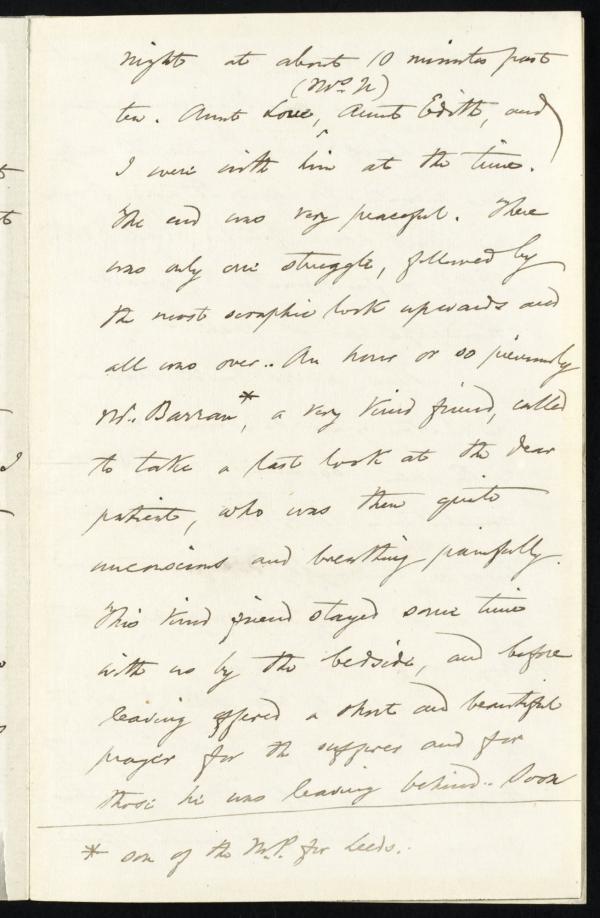 night at about 10 minutes past
(Mrs N)
ten. Aunt Love, Aunt Edith, and
I were with him at the time.
The end was very peaceful. There
was only one struggle, followed by
the most seraphic look upwards and
all was over.. An hour or so previously
Mr. Barran*, a very kind friend, called
to take a last look at the dear
patient, who was then quite
unconscious and breathing painfully.
This kind friend stayed some time
with us by the bedside, and before
leaving offered a short and beautiful
prayer for the sufferer and for
those he was leaving behind.. Soon
* son of the M.P. for Leeds.